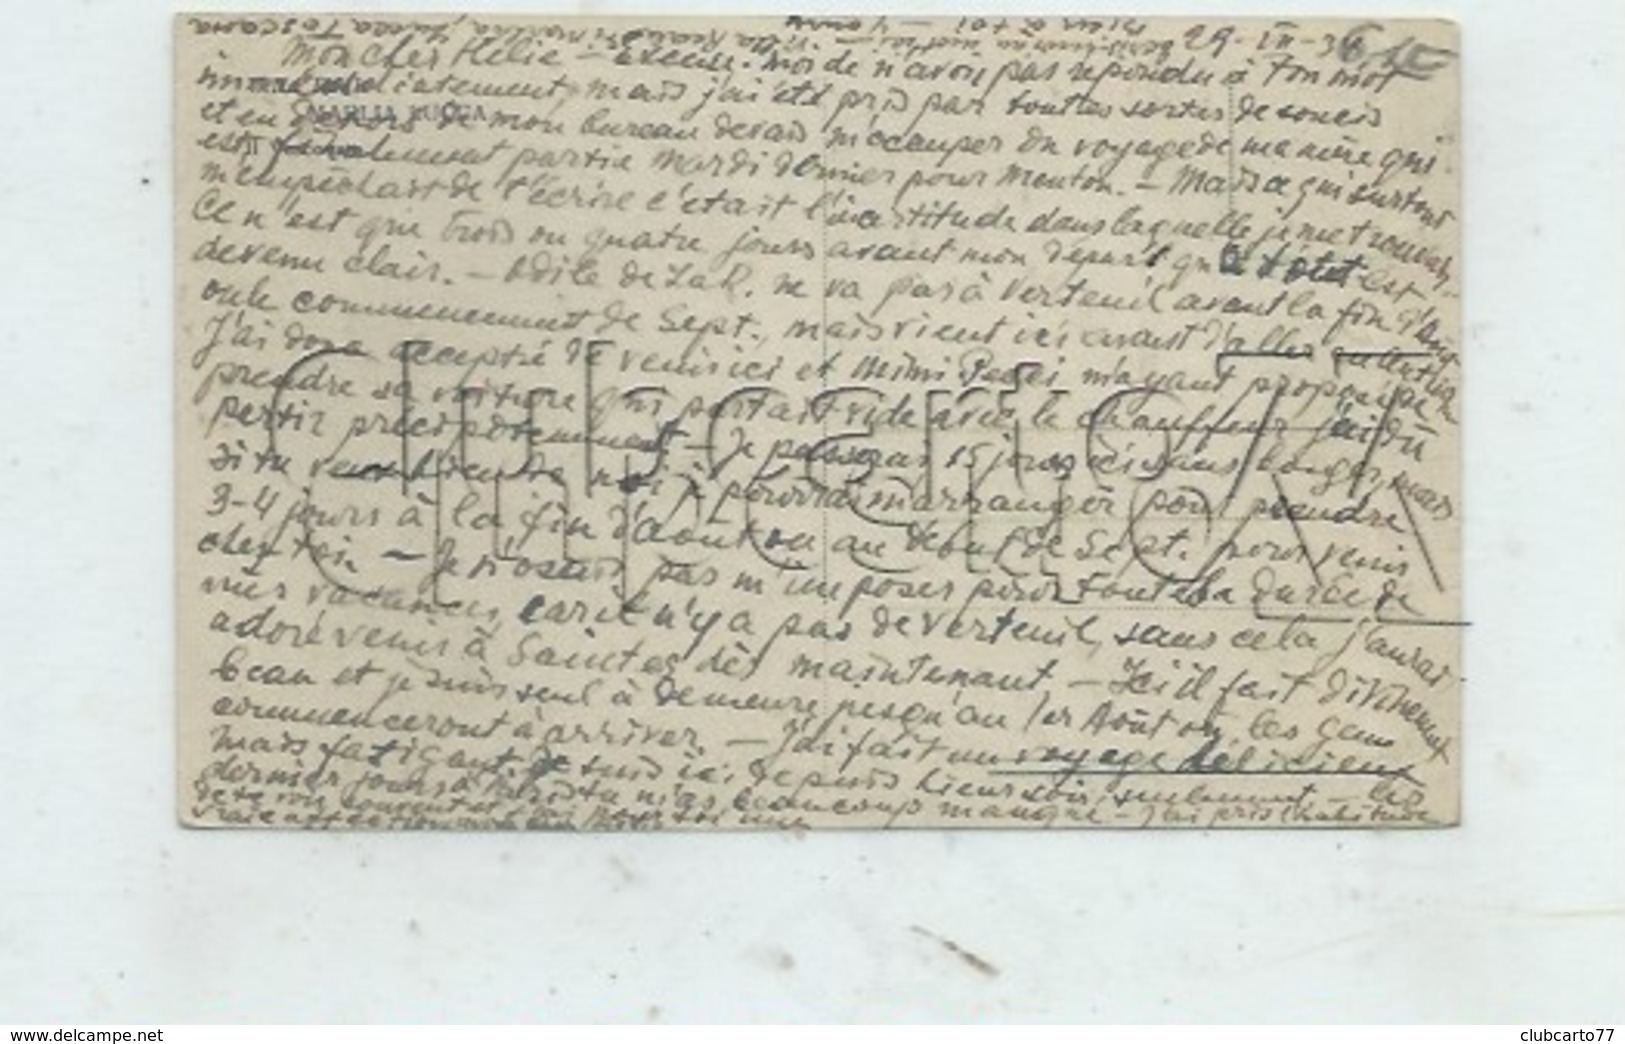 29-VII-36
Mon cher Hélie - Excuse-moi de n'avoir pas répondu à ton mot
immédiatement, mais j'ai été pris par toutes sortes de soucis
et en dehors de mon bureau devais m'occuper du voyage de ma mère qui
est finalement partie mardi dernier pour Menton. - Mais ce qui surtout
m'empêchait de t'écrire c'était l'incertitude dans laquelle je me trouvais.
Ce n'est que trois ou quatre jours avant mon départ que tout est
devenu clair. - Odile de La R. ne va pas à Verteuil avant la fin d'Août
ou le commencement de Sept., mais vient ici avant d'aller
J'ai donc accepté de venir ici et Mimi Pecci m'ayant proposé de
prendre sa voiture qui partait vide avec le chauffeur j'ai dû
partir précipitemment - Je passerai 15 jours ici sans bouger, mais
si tu veux de moi je pourrai m'arranger pour prendre
3-4 jours à la fin d'août ou au début de Sept. pour venir
chez toi. - Je n'oserais pas m'imposer pour toute la durée de
mes vacances, car il n'y a pas de Verteuil, sans cela j'aurai
adoré venir à Saintes dès maintenant - Ici il fait divinement
beau et je suis seul à demeure jusqu'au 1er Août où les gens
commenceront à arriver. - J'ai fait un voyage délicieux
mais fatigant. Je suis ici depuis hier soir seulement - Les
derniers jours à Paris tu m'as beaucoup manqué - J'ai pris l'habitude
de te voir souvent et
vraie affection
bien à toi -
MARLIA LUCCA
Clubcarto77
www.delcampe.net
clubcarto77